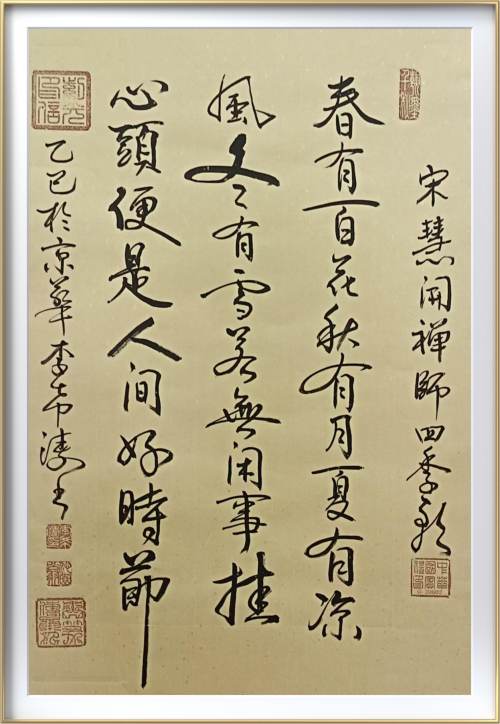 宋慧開禪師四季歌
春有百花秋有月夏有凉
風冬有雪若無闲事挂
心頭便是人间好時節
乙巳於京華李希濤书